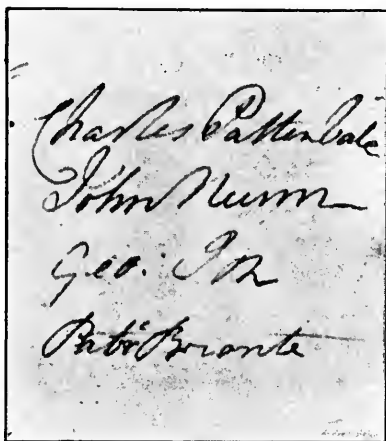 Charles Pattendale
John Nunn
Geo.
Patk. Bronte